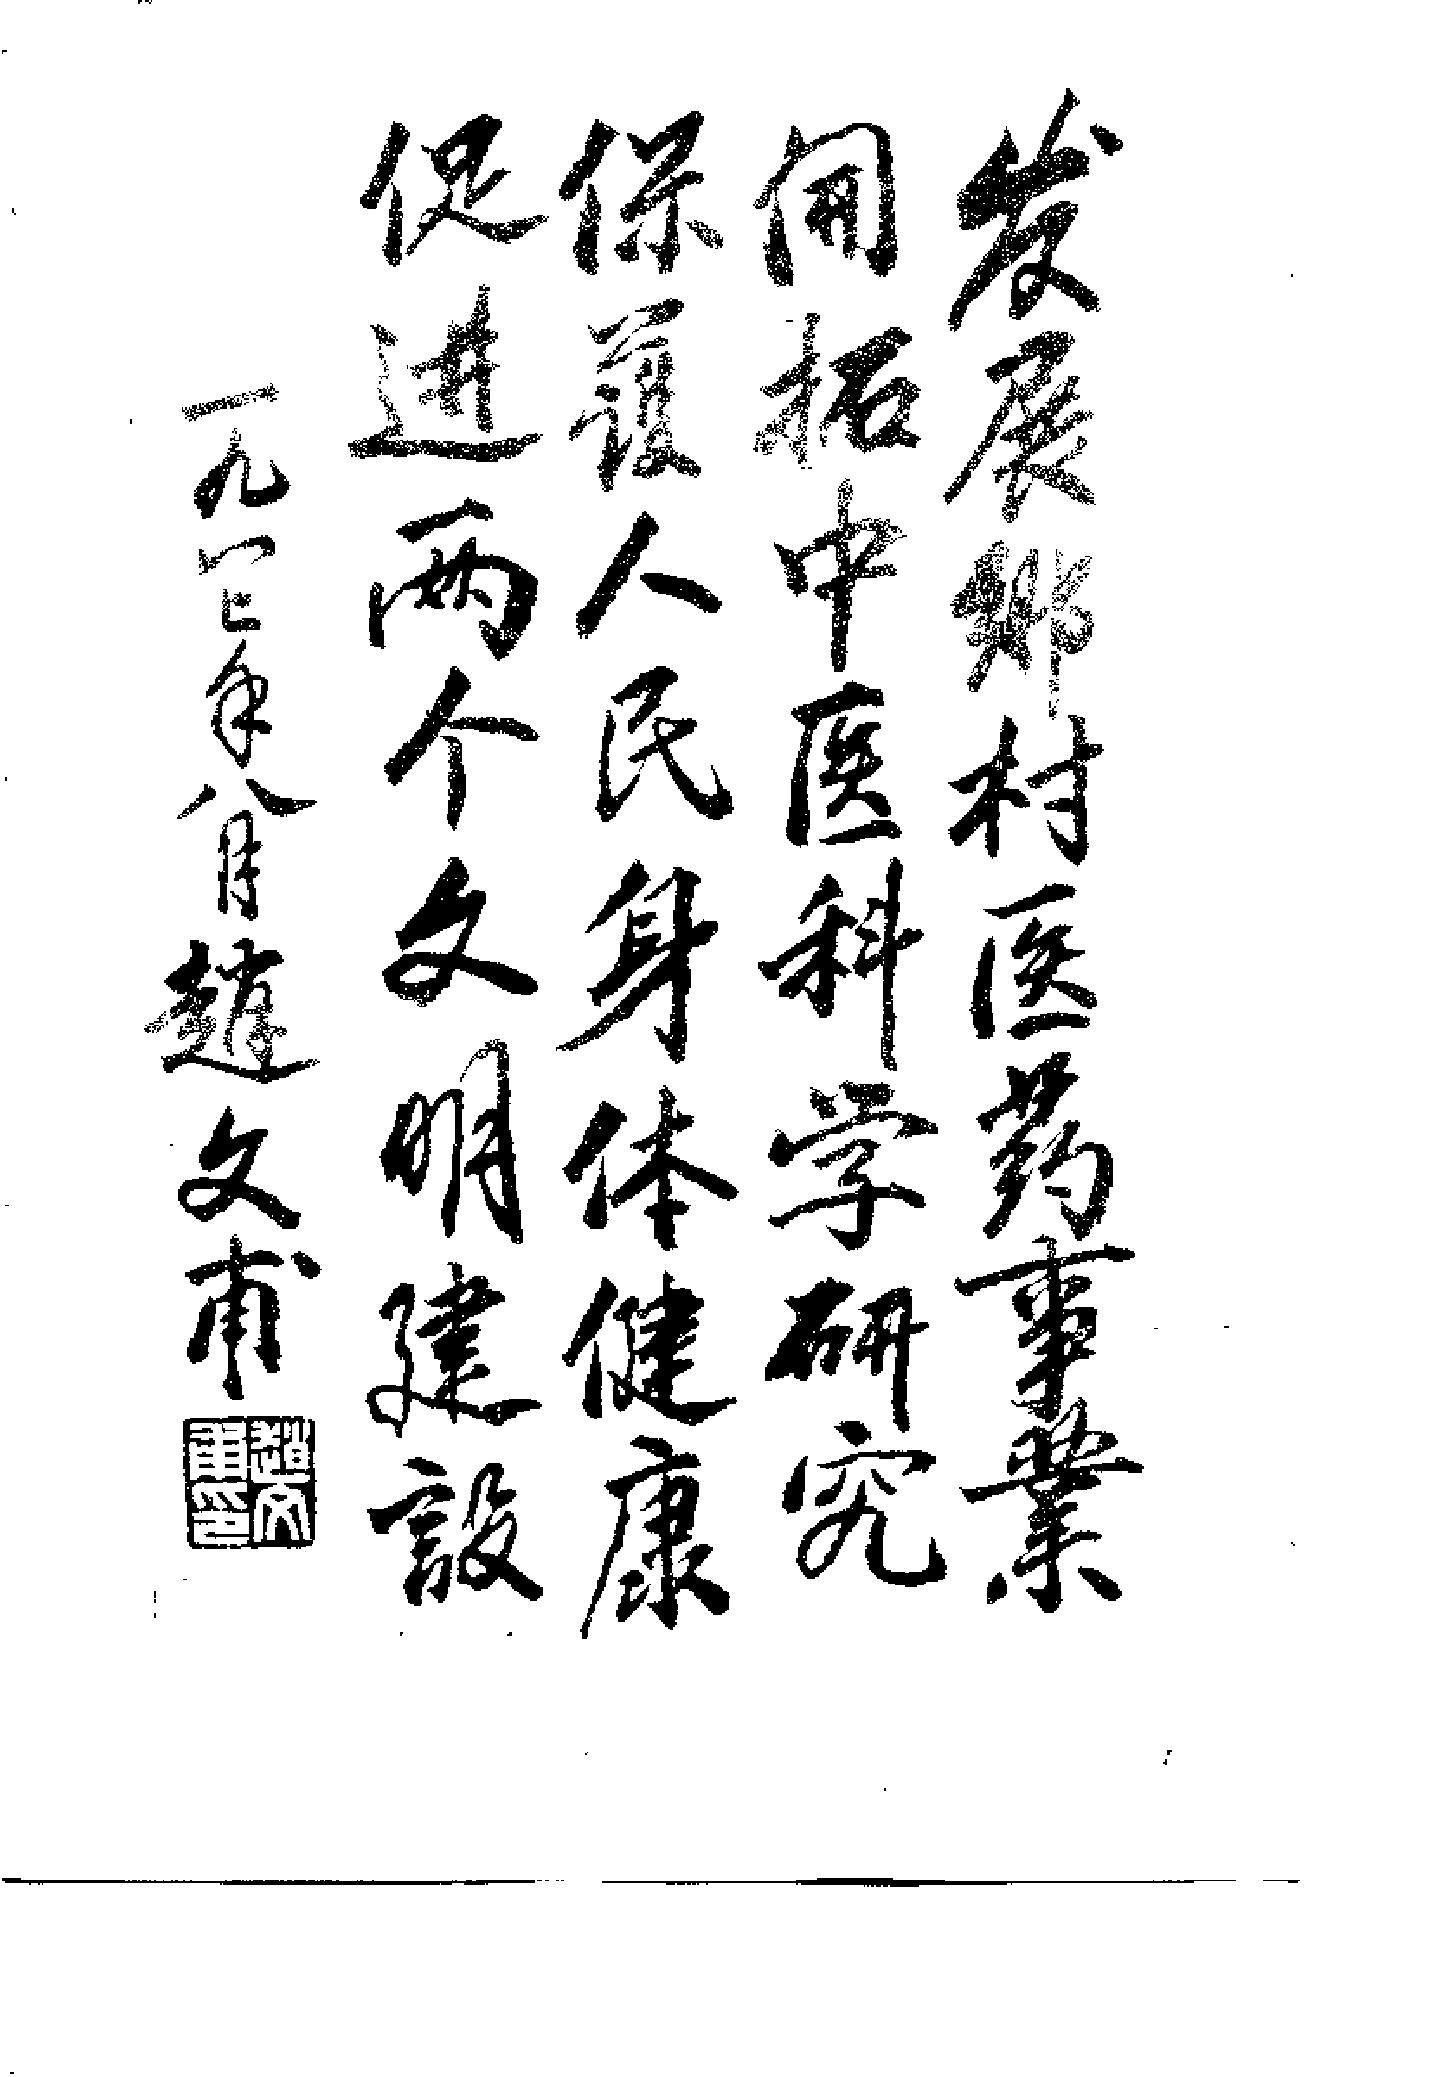 发展鄉村医药事業
開拓中医科学研究
保護人民身体健康
促进两个文明建設
一九八七年八月趙文甫
趙文甫印